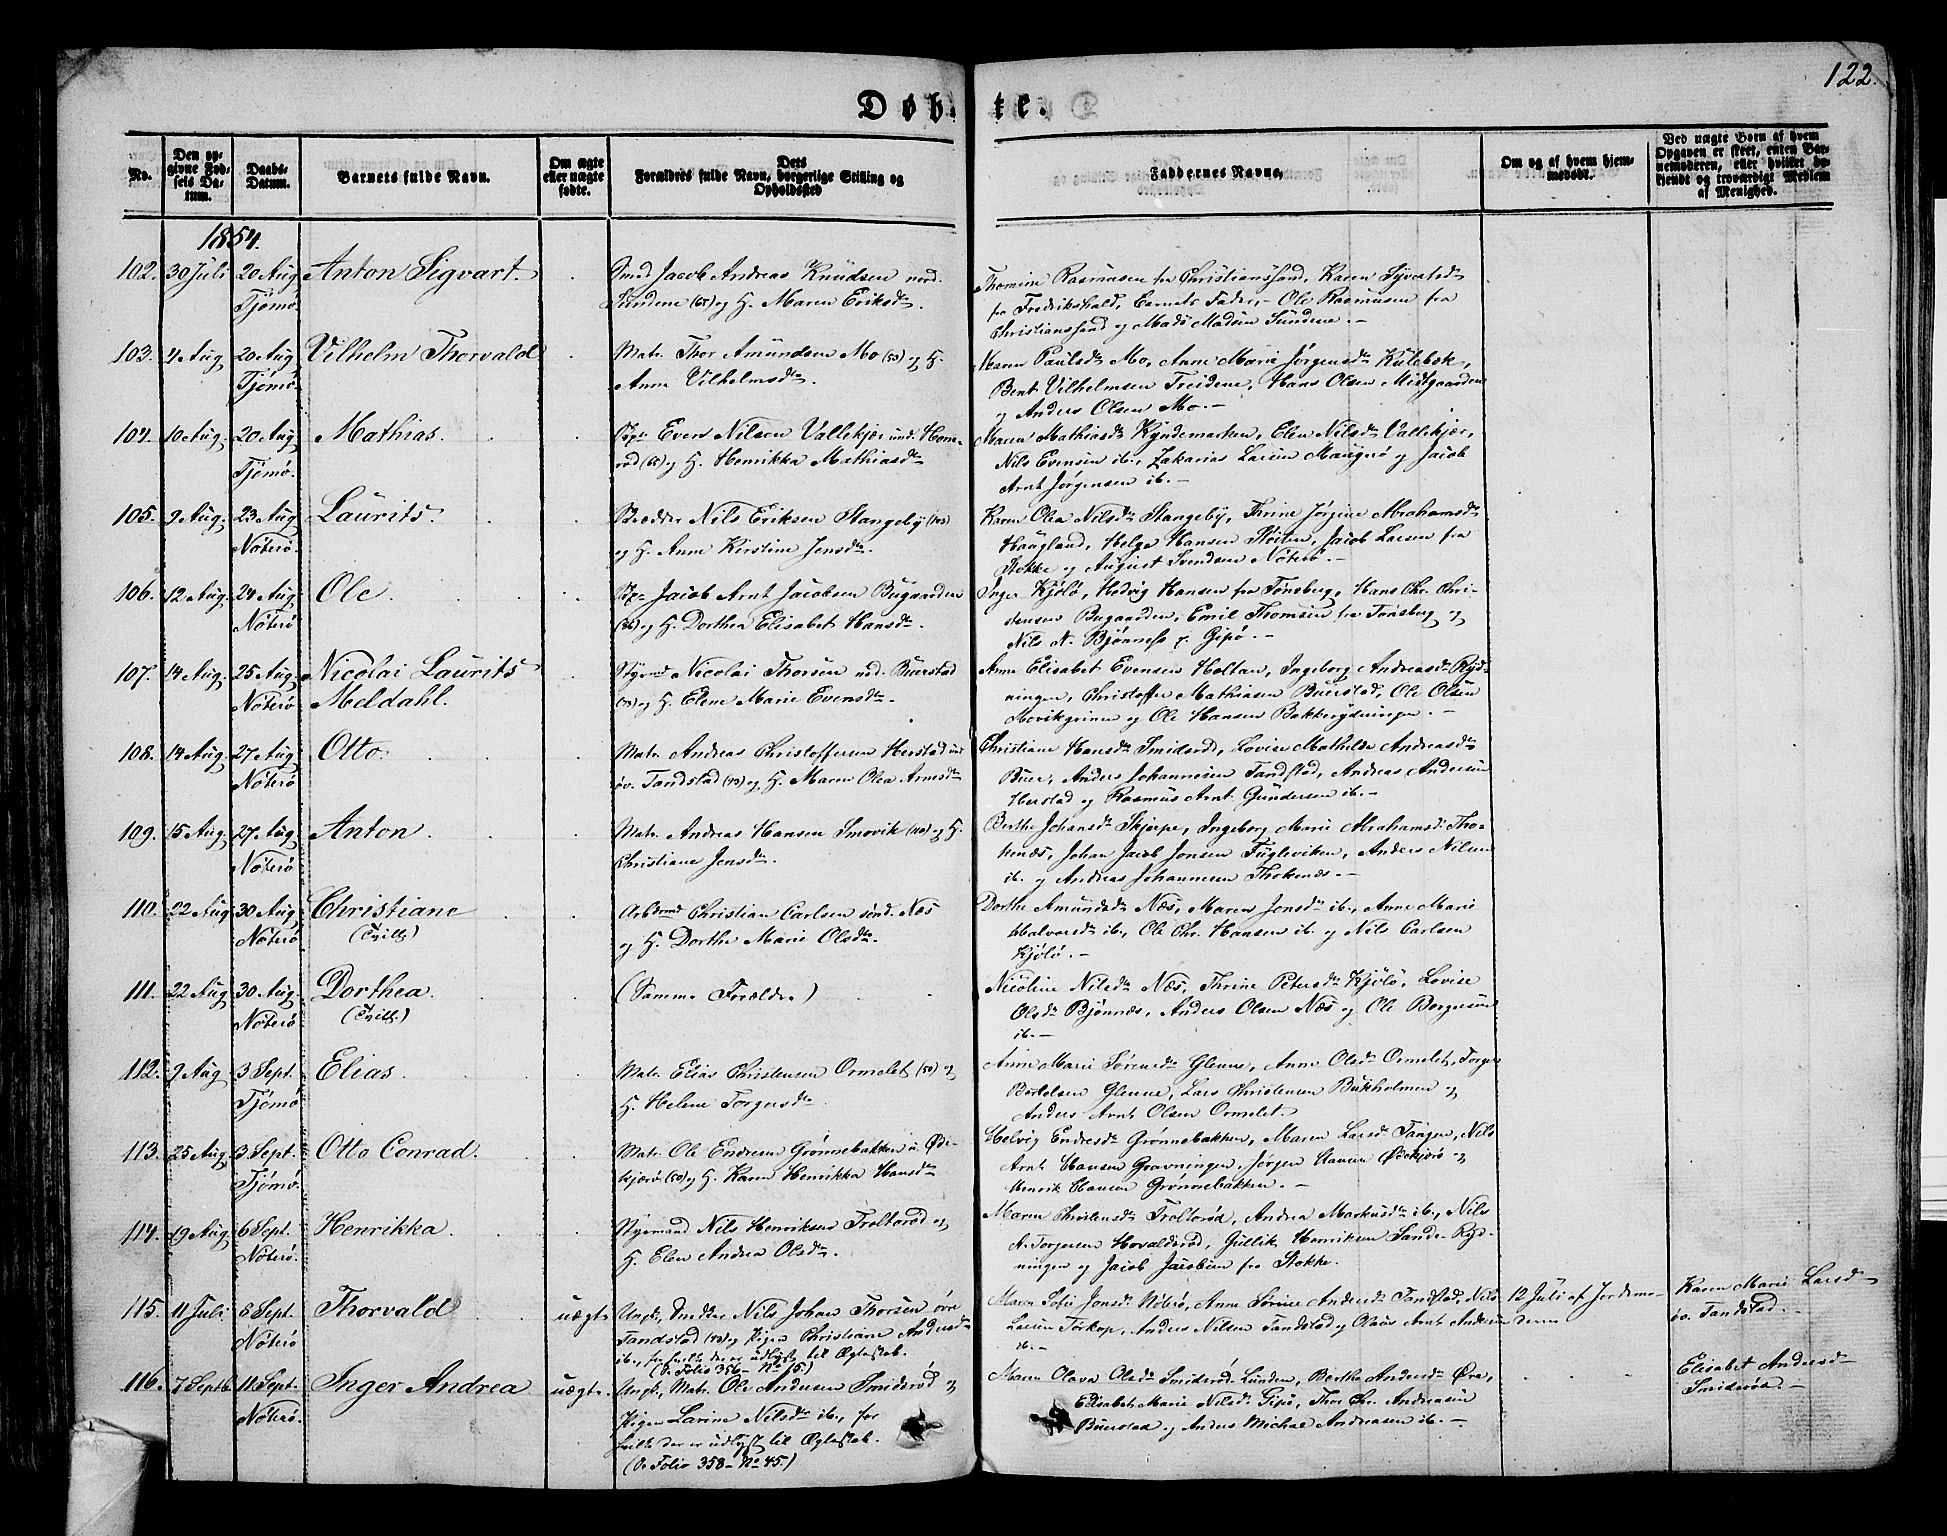 122.
Døb- te.
No.
Den op-
givne Fød-
sels Da-
tum.
Daabs-
Datum.
Barnets fulde Navn.
Om ægte
eller uægte
fødte.
Dets
Forældres fulde Navn, borgerlige Stilling og
Opholdssted
Faddernes Navne,
Om og af hvem hjem-
medøbt.
Ved uægte Børn af hvem
Opgaven er skeet, enten Bar-
nemoderen, eller hvilket be-
kjendt og troværdigt Medlem
af Menighed.
1854.
102. 30 Juli 20 Aug Tjømø. Anton Sigvart.
Smed Jacob Andreas Knudsen nord.
Sundene (65) og H. Maren Eriksdr.
Thomine Rasmusen fra Christianssand, Karen Syverstdr
fra Fredrikshald, Barnets Fader, - Ole Rasmusen fra
Christianssand og Mads Madsen Sundene. -
103. 4 Aug 20 Aug Tjømø. Vilhelm Thorvald
Matr. Thor Amundsen Mo (53) og H.
Anne Vilhelmsdr.
Maren Paulsdr Mo, Anne Marie Jørgensdr Kulebæk,
Bent Vilhelmsen Treidene, Hans Olsen Midtgaarden
og Anders Olsen Mo. -
104. 10 Aug. 20 Aug Tjømø. Mathias.
Even Nilsen Vallekjær und. Hom-
rød (62) og H. Henrikka Mathiasdr
Maren Mathiasdr Kyndemarken, Elen Nilsdr Vallekjær,
Nils Evensen ib., Zakarias Larsen Mangerø og Jacob
Arnt Jørgensen ib. -
105. 9 Aug. 23 Aug Nøterø. Laurits.
Nils Eriksen Stangeby (103)
og H. Anne Kirstine Jensdr.
Karen Olea Nilsdr Stangeby, Thrine Jørgine Abrahamsdr
Haugland, Helge Hansen Fløiten, Jacob Larsen fra
Stokke og August Svendsen Nøterø. -
106. 12 Aug. 24 Aug Nøterø Ole.
Jacob Arnt Jacobsen Bugaarden
(36) og H. Dorthea Elisabet Hansdr.
Inger Kjøló, Hedvig Hansen fra Tønsberg, Hans Chr. Chri-
stensen Bugaarden, Emil Thomsen fra Tønsberg og
Nils N. Bjønness p. Gipø. -
107. 14 Aug. 25 Aug. Nøterø Nicolai Laurits
Meldahl.
Styrmd Nicolai Thorsen nd. Buerstad
(73) og H. Elene Marie Evensdr.
Anne Elisabet Evensen Holtan, Ingeborg Andreasdr Ryd-
ningen, Christoffer Mathiasen Buerstad, Ole Olsen
Movikgrinen og Ole Hansen Bakkerydningen. -
108. 14 Aug. 27 Aug Nøterø Otto.
Matr. Andreas Christoffersen Herstad und
øv. Tandstad (93) og H. Maren Olea Arnesdr
Christiane Hansdr Smidsrød, Lovise Mathilde Andreasdr
Buer, Anders Johannesen Tandstad, Andreas Andersen
Herstad og Rasmus Arnt Gundersen ib. -
109. 15 Aug. 27 Aug. Nøterø. Anton.
Matr. Andreas Hansen Smovik (110) og H.
Christiane Jensdr.
Berthe Johansdr Skjerpe, Ingeborg Marie Abrahamsdr Tho-
kenæs, Johan Jacob Jonsen Fugleviken, Anders Nilsen
ib. og Andreas Johannesen Thokenæs. -
110. 22 Aug 30 Aug. Nøterø Christiane
(Tvill.)
Arbmd Christian Carlsen sønd. Næs
og H. Dorthe Marie Olsdr.
Dorthe Amundsdr Næs, Maren Jensdr ib., Anne Marie
Halvorsdr ib., Ole Chr. Hansen ib. og Nils Carlsen
Kjøló. -
111. 22 Aug 30 Aug. Nøterø Dorthea.
(Tvill.)
(Samme Forældre)
Nicoline Nilsdr Næs, Thrine Petersdr Kjøló, Lovise
Olsdr Bjønnæs, Anders Olsen Næs og Ole Borgersen
ib. -
112. 9 Aug 3 Sept. Tjømø Elias.
Matr. Elias Christensen Ormelet (50) og
H. Helene Torgersdr.
Anne Marie Sørensdr Glenne, Anne Olsdr Ormelet, Torger
Bertelsen Glenne, Lars Christensen Bukholmen og
Anders Arnt Olsen Ormelet.
113. 25 Aug. 3 Sept. Tjømø. Otto Conrad.
Matr. Ole Endresen Grønnebakken u. Øde-
kjærø (50) og H. Karen Henrikka Hansdr
Helvig Endresdr Grønnebakken, Maren Larsdr Tangen, Nils
Arnt Hansen Gravningen, Jørgen Hansen Ødekjærø og
Henrik Hansen Grønnebakken. -
114. 19 Aug. 6 Sept. Nøterø. Henrikka.
Styrmand Nils Henriksen Troltorød og
H. Elen Andrea Olsdr.
Maren Christensdr Troltorød, Andrea Markusdr ib., Nils
A. Torgersen Hovaldsrød, Gullik Henriksen Sande-Ryd-
ningen og Jacob Jacobsen fra Stokke.
115. 11 Juli 8 Sept. Nøterø Thorvald uægt.
Ungk. Snedker Nils Johan Thorsen øvre
Tandstad (93) og Pigen Christiane Andersdr
ib., for hvilke der er udlyst til Ægteskab.
(V. Folio 356 - No 15.)
Maren Sofie Jonsdr Nøterø, Anne Sørine Andersdr Tandstad, Nils
Larsen Torkop, Anders Nilsen Tandstad og Olaus Arnt Andersen
ib. -
12 Juli af Jordemo-
deren
Karen Marie Larsdr
øv. Tandstad. -
116. 7 Septb. 11 Sept. Nøterø. Inger Andrea uægt.
Ungk. Matr. Ole Andersen Smidsrød og
Pigen Larine Nilsdr ib., for
hvilke der er udlyst til Ægteskab.
(V. Folio 358 - No 45.)
Maren Olava Olsdr Smidsrød-Lunden, Berthe Andersdr Øra,
Elisabet Marie Nilsdr Gipø, Thor Chr. Andreasen
Buerstad og Anders Michal Andreasen ib. -
Elisabet Andersdr
Smidsrød. -